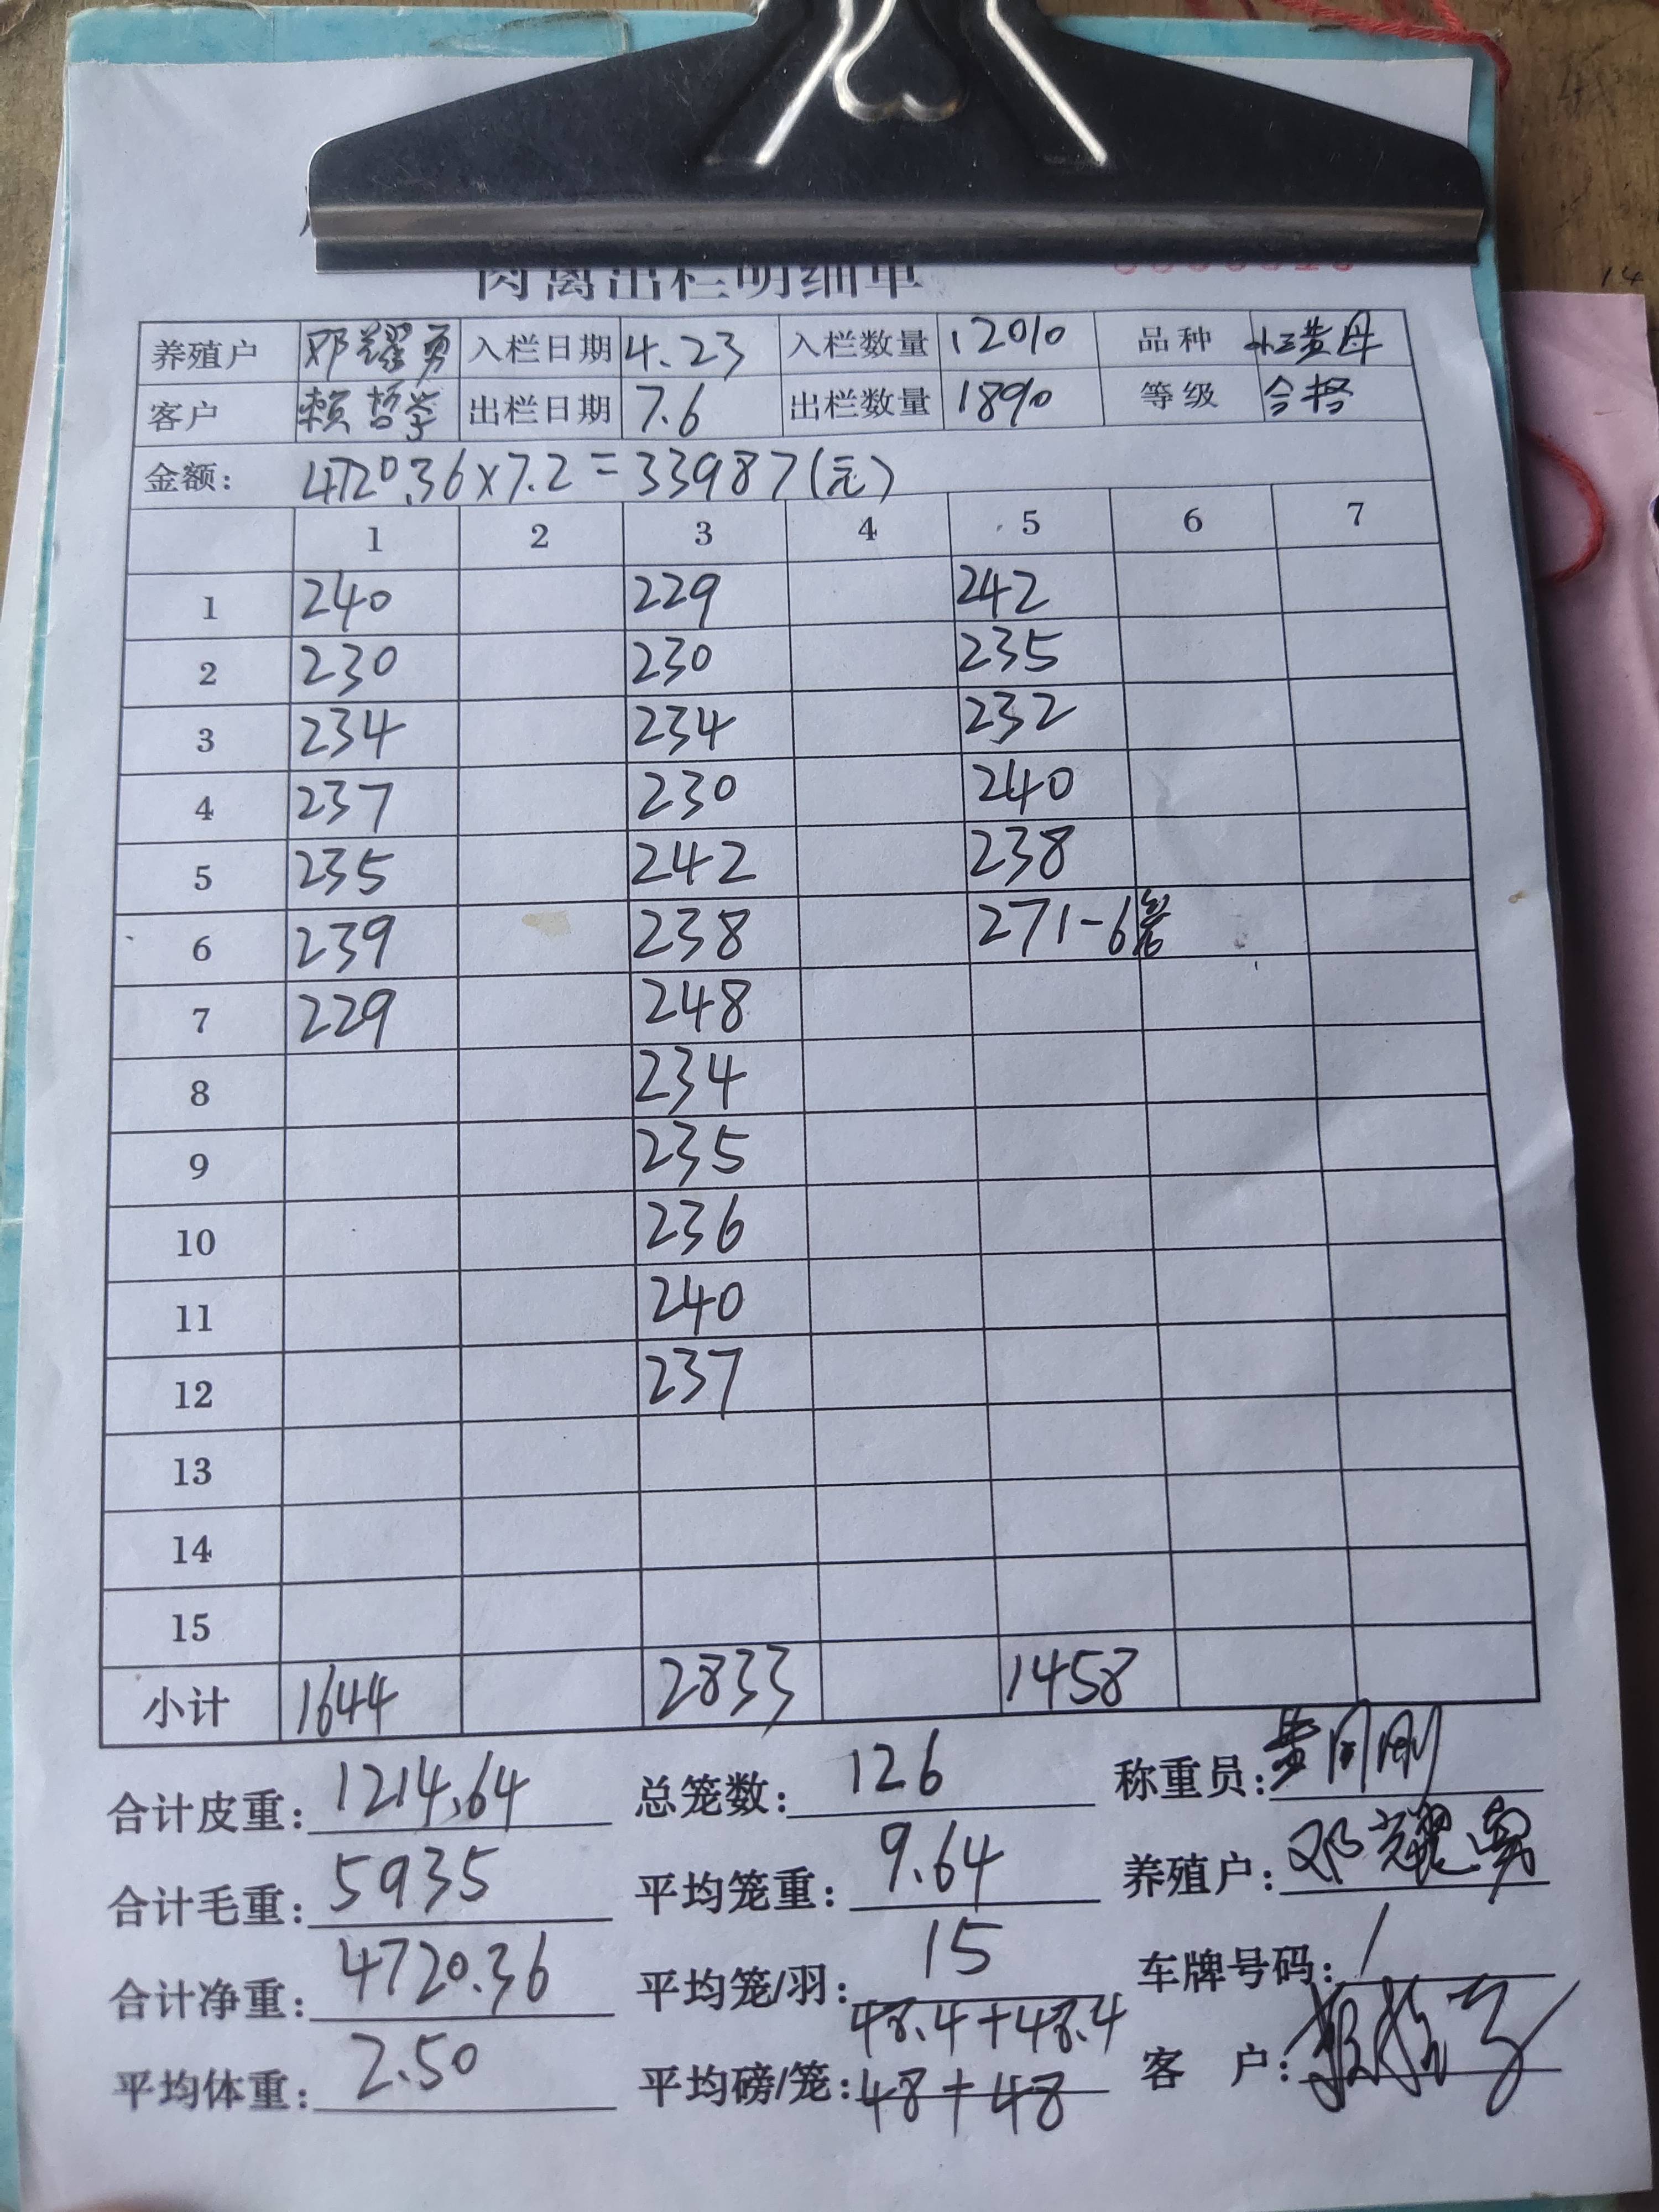 肉禽出栏明细单
养殖户 邓耀勇 入栏日期 4.23 入栏数量 12010 品种 黄母
客户 赖哲学 出栏日期 7.6 出栏数量 1890 等级 合格
金额: 4720.36×7.2=33987(元)
1 2 3 4 5 6 7
1 240 229 242
2 230 230 235
3 234 234 232
4 237 230 240
5 235 242 238
6 239 238 271-6笼
7 229 248
8 234
9 235
10 236
11 240
12 237
13
14
15
小计 1644 2833 1458
合计皮重: 1214.64 总笼数: 126 称重员: 黄刚刚
合计毛重: 5935 平均笼重: 9.64 养殖户: 邓耀勇
合计净重: 4720.36 平均笼/羽: 15 车牌号码: /
48.4+48.4
平均体重: 2.50 平均磅/笼: 48+48 客 户:
14